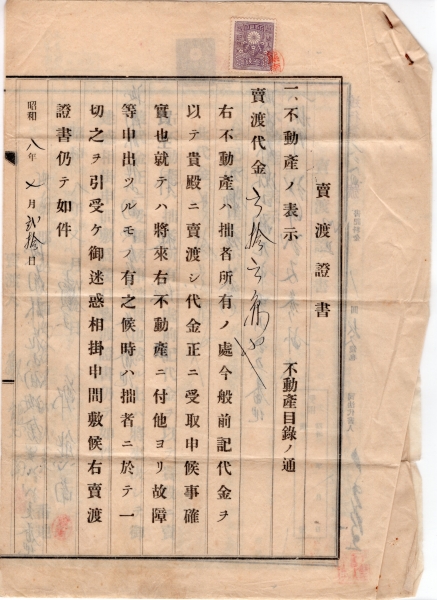 賣渡證書
一、不動產ノ表示　不動產目錄ノ通
賣渡代金
右不動產ハ拙者所有ノ處今般前記代金ヲ
以テ貴殿ニ賣渡シ代金正ニ受取申候事確
實也就テハ將來右不動產ニ付他ヨリ故障
等申出ツルモノ有之候時ハ拙者ニ於テ一
切之ヲ引受ケ御迷惑相掛申間敷候右賣渡
證書仍テ如件
昭和八年七月貳拾日